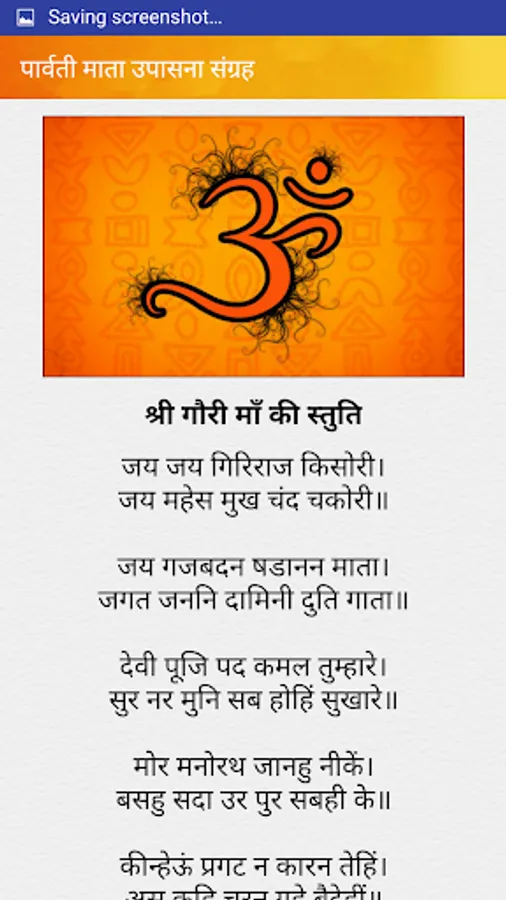 Saving screenshot...
पार्वती माता उपासना संग्रह
ॐ
श्री गौरी माँ की स्तुति
जय जय गिरिराज किसोरी।
जय महेस मुख चंद चकोरी॥
जय गजबदन षडानन माता।
जगत जननि दामिनी दुति गाता॥
देवी पूजि पद कमल तुम्हारे।
सुर नर मुनि सब होहिं सुखारे॥
मोर मनोरथ जानहु नीकें।
बसहु सदा उर पुर सबही के॥
कीन्हेऊं प्रगट न कारन तेहिं।